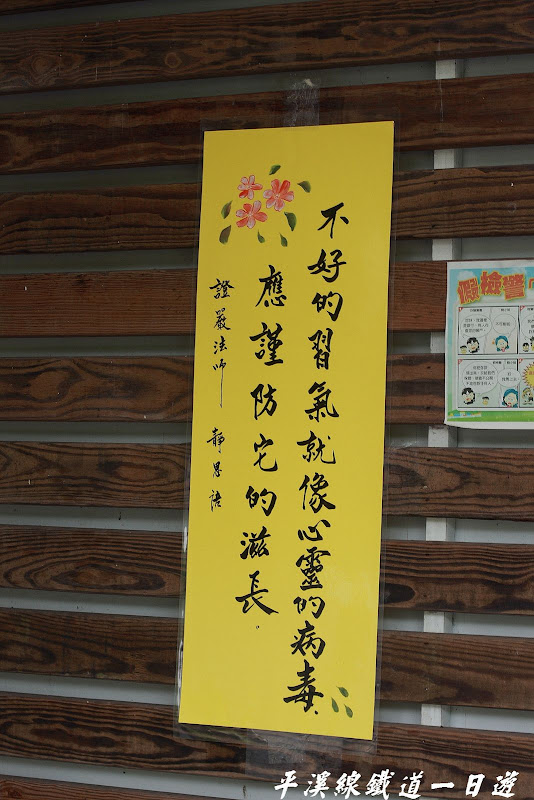 不好的習氣就像心靈的病毒，
應謹防它的滋長。
證嚴法師 靜思語
假檢警
平溪線鐵道一日遊